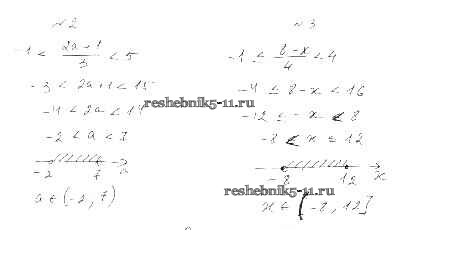 №2
-1 < (2a+1)/3 < 5
-3 < 2a+1 < 15
-4 < 2a < 14
-2 < a < 7
-2 7 a
a ∈ (-2, 7)
№3
-1 ≤ (8-x)/4 < 4
-4 ≤ 8-x < 16
-12 ≤ -x < 8
-8 < x ≤ 12
-8 12 x
x ∈ (-8, 12]
reshebnik5-11.ru
reshebnik5-11.ru